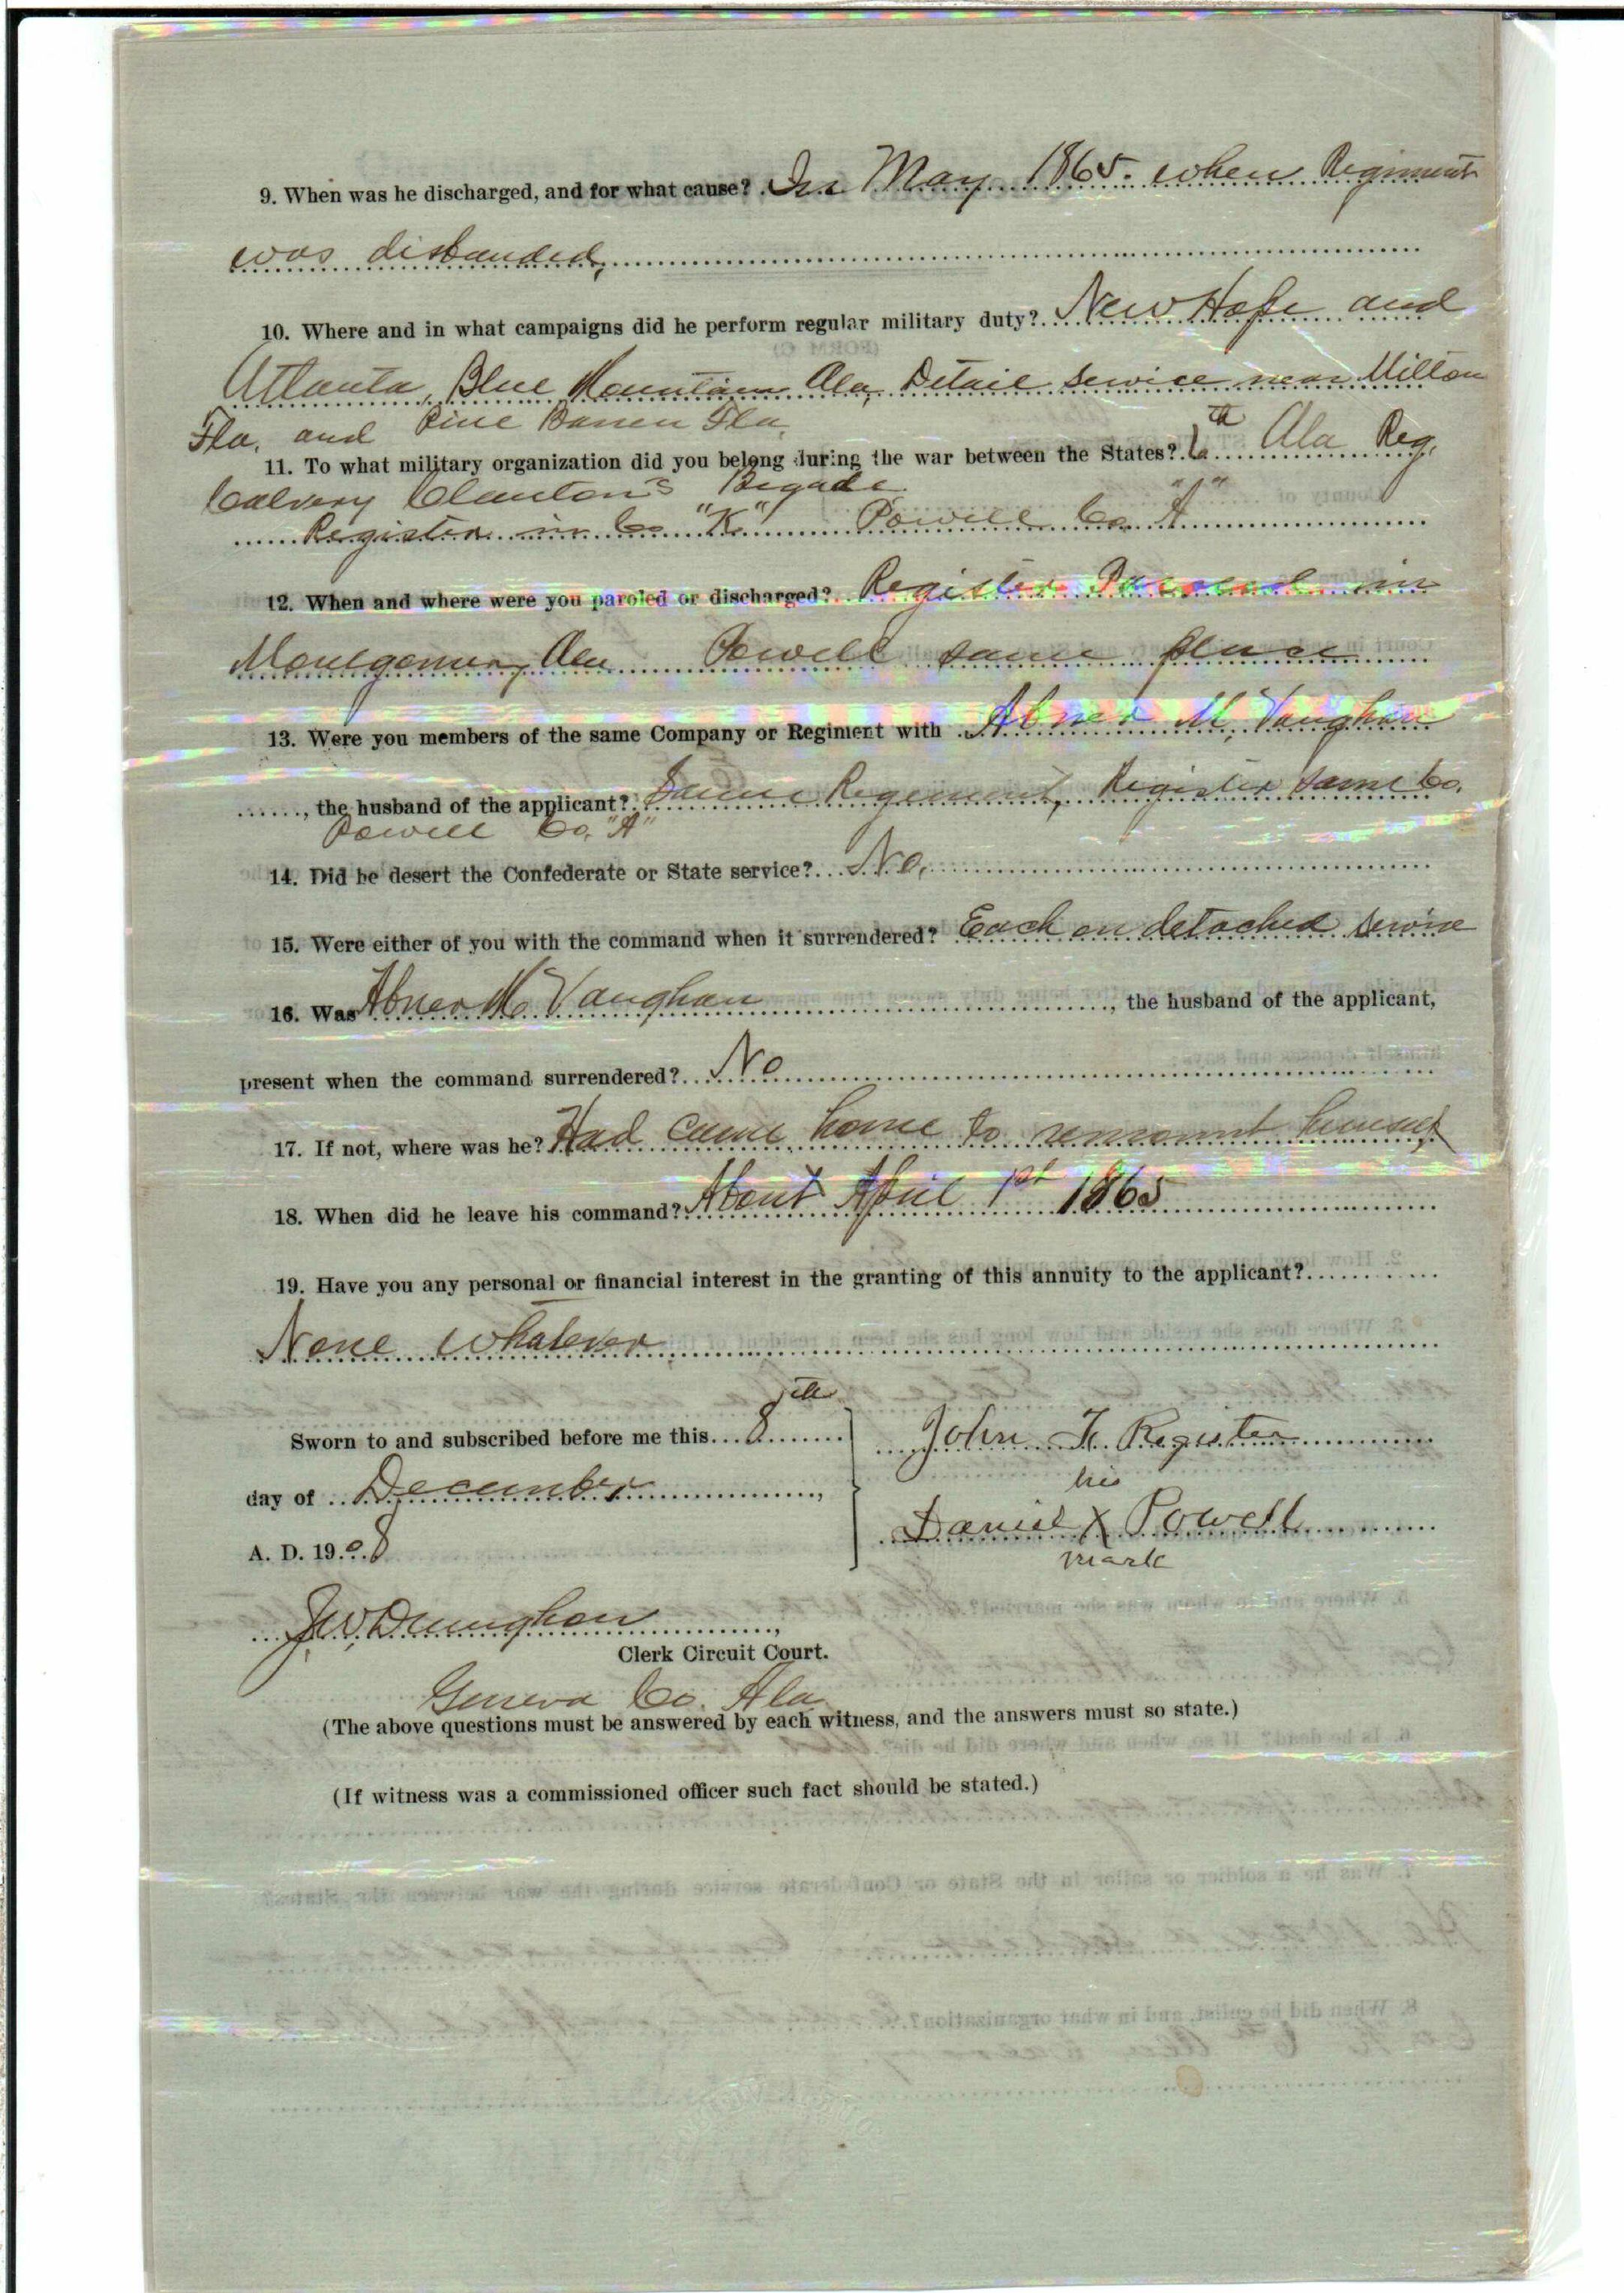 9. When was he discharged, and for what cause? In May 1865. when Regiment
was disbanded,
10. Where and in what campaigns did he perform regular military duty? New Hope and
Atlanta, Blue Mountain Ala, Detail service near Milton
Fla. and Pine Barren Fla.
11. To what military organization did you belong during the war between the States? 6th Ala Reg.
Calvery Clanton's Brigade
Register in Co "K" Powell Co "A"
12. When and where were you paroled or discharged? Register in
Montgomery Ala Powell same place
13. Were you members of the same Company or Regiment with Abner M. Vaughan
, the husband of the applicant? Same Regiment, Register same Co.
Powell Co. "A"
14. Did he desert the Confederate or State service? No.
15. Were either of you with the command when it surrendered? Each on detached service
16. Was Abner M Vaughan, the husband of the applicant,
present when the command surrendered? No
17. If not, where was he? Had come home to remount himself
18. When did he leave his command? About April 1st 1865
19. Have you any personal or financial interest in the granting of this annuity to the applicant?
None whatever
Sworn to and subscribed before me this 8th
day of December,
A. D. 1908
John F. Register
his
Daniel X Powell
mark
J.W. Dunnghan,
Clerk Circuit Court.
Geneva Co. Ala
(The above questions must be answered by each witness, and the answers must so state.)
(If witness was a commissioned officer such fact should be stated.)